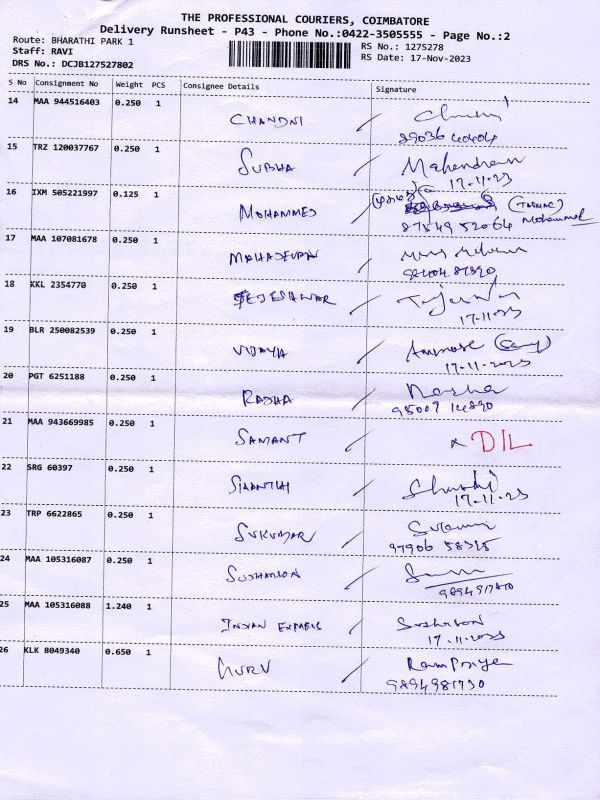 THE PROFESSIONAL COURIERS, COIMBATORE
Delivery Runsheet - P43 - Phone No.:0422-3505555 - Page No.:2
Route: BHARATHI PARK 1
Staff: RAVI
DRS No.: DCJB127527802
RS No.: 1275278
RS Date: 17-Nov-2023
S No Consignment No Weight PCS Consignee Details Signature
14 MAA 944516403 0.250 1 CHANDNI
15 TRZ 120037767 0.250 1 SUBHA Mahendran
17.11.23
16 IXM 505221997 0.125 1 MOHAMMED
87549 52064 Mohammed
17 MAA 107081678 0.250 1 MAHADEVAN
18 KKL 2354770 0.250 1 TEJESHWAR
17.11.23
19 BLR 250082539 0.250 1 VIDAYA
17.11.2023
20 PGT 6251188 0.250 1 RADHA Radha
95009 14890
21 MAA 943669985 0.250 1 SAMANT x D/L
22 SRG 60397 0.250 1 SHANTHI Shanthi
17.11.23
23 TRP 6622865 0.250 1 SUKUMAR
97906 58325
24 MAA 105316087 0.250 1
25 MAA 105316088 1.240 1 INDIAN EXPRESS
17.11.2023
26 KLK 8049340 0.650 1 GURU Ram Priya
9894981730